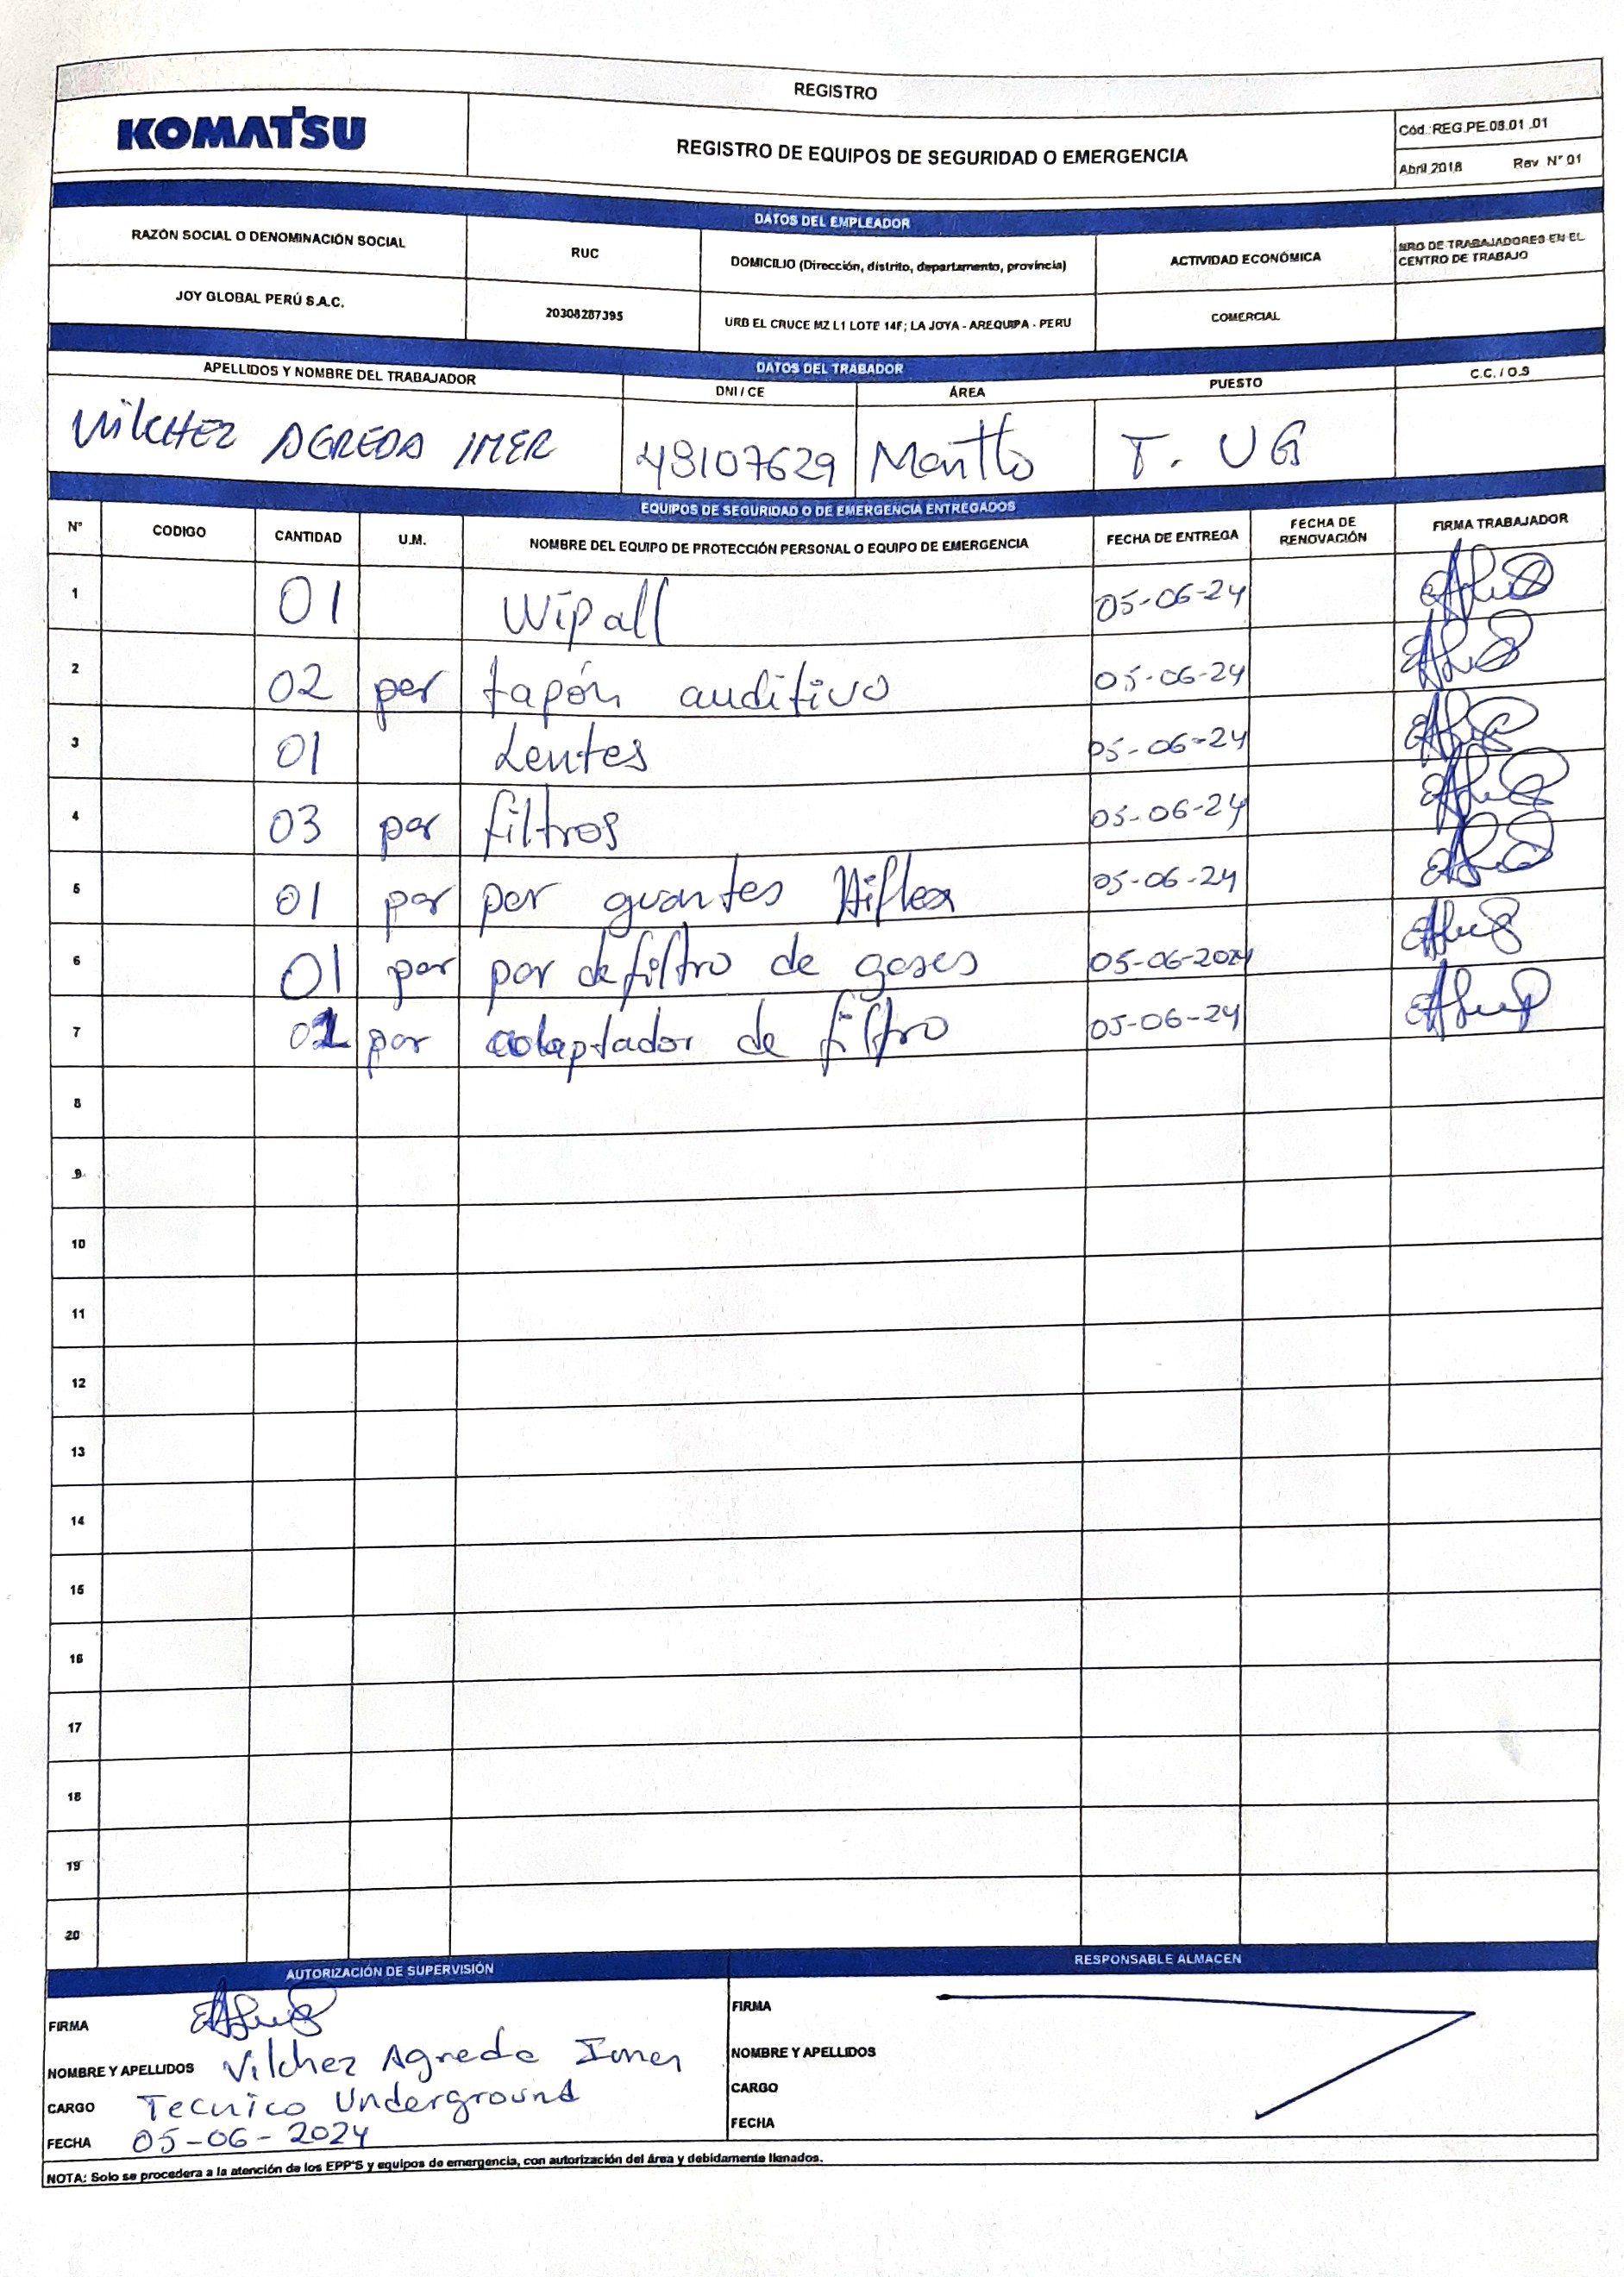 REGISTRO
KOMATSU
REGISTRO DE EQUIPOS DE SEGURIDAD O EMERGENCIA
Cód.:REG.PE.08.01 .01
Abril 2018 Rev N° 01
DATOS DEL EMPLEADOR
RAZÓN SOCIAL O DENOMINACIÓN SOCIAL RUC DOMICILIO (Dirección, distrito, departamento, provincia) ACTIVIDAD ECONÓMICA NRO DE TRABAJADORES EN EL CENTRO DE TRABAJO
JOY GLOBAL PERÚ S.A.C. 20308287395 URB EL CRUCE MZ L1 LOTE 14F; LA JOYA - AREQUIPA - PERU COMERCIAL
DATOS DEL TRABADOR
APELLIDOS Y NOMBRE DEL TRABAJADOR DNI / CE ÁREA PUESTO C.C. / O.S
VILCHEZ AGREDA IMER 48107629 Mantto T. UG
EQUIPOS DE SEGURIDAD O DE EMERGENCIA ENTREGADOS
N° CODIGO CANTIDAD U.M. NOMBRE DEL EQUIPO DE PROTECCIÓN PERSONAL O EQUIPO DE EMERGENCIA FECHA DE ENTREGA FECHA DE RENOVACIÓN FIRMA TRABAJADOR
1 01 Wipall 05-06-24
2 02 par tapón auditivo 05-06-24
3 01 Lentes 05-06-24
4 03 par filtros 05-06-24
5 01 par par guantes Hiflex 05-06-24
6 01 par par de filtro de gases 05-06-2024
7 par adaptador de filtro 05-06-24
8
9
10
11
12
13
14
15
16
17
18
19
20
AUTORIZACIÓN DE SUPERVISIÓN RESPONSABLE ALMACEN
FIRMA FIRMA
NOMBRE Y APELLIDOS Vilchez Agreda Imer NOMBRE Y APELLIDOS
CARGO Tecnico Underground CARGO
FECHA 05-06-2024 FECHA
NOTA: Solo se procedera a la atención de los EPP'S y equipos de emergencia, con autorización del área y debidamente llenados.